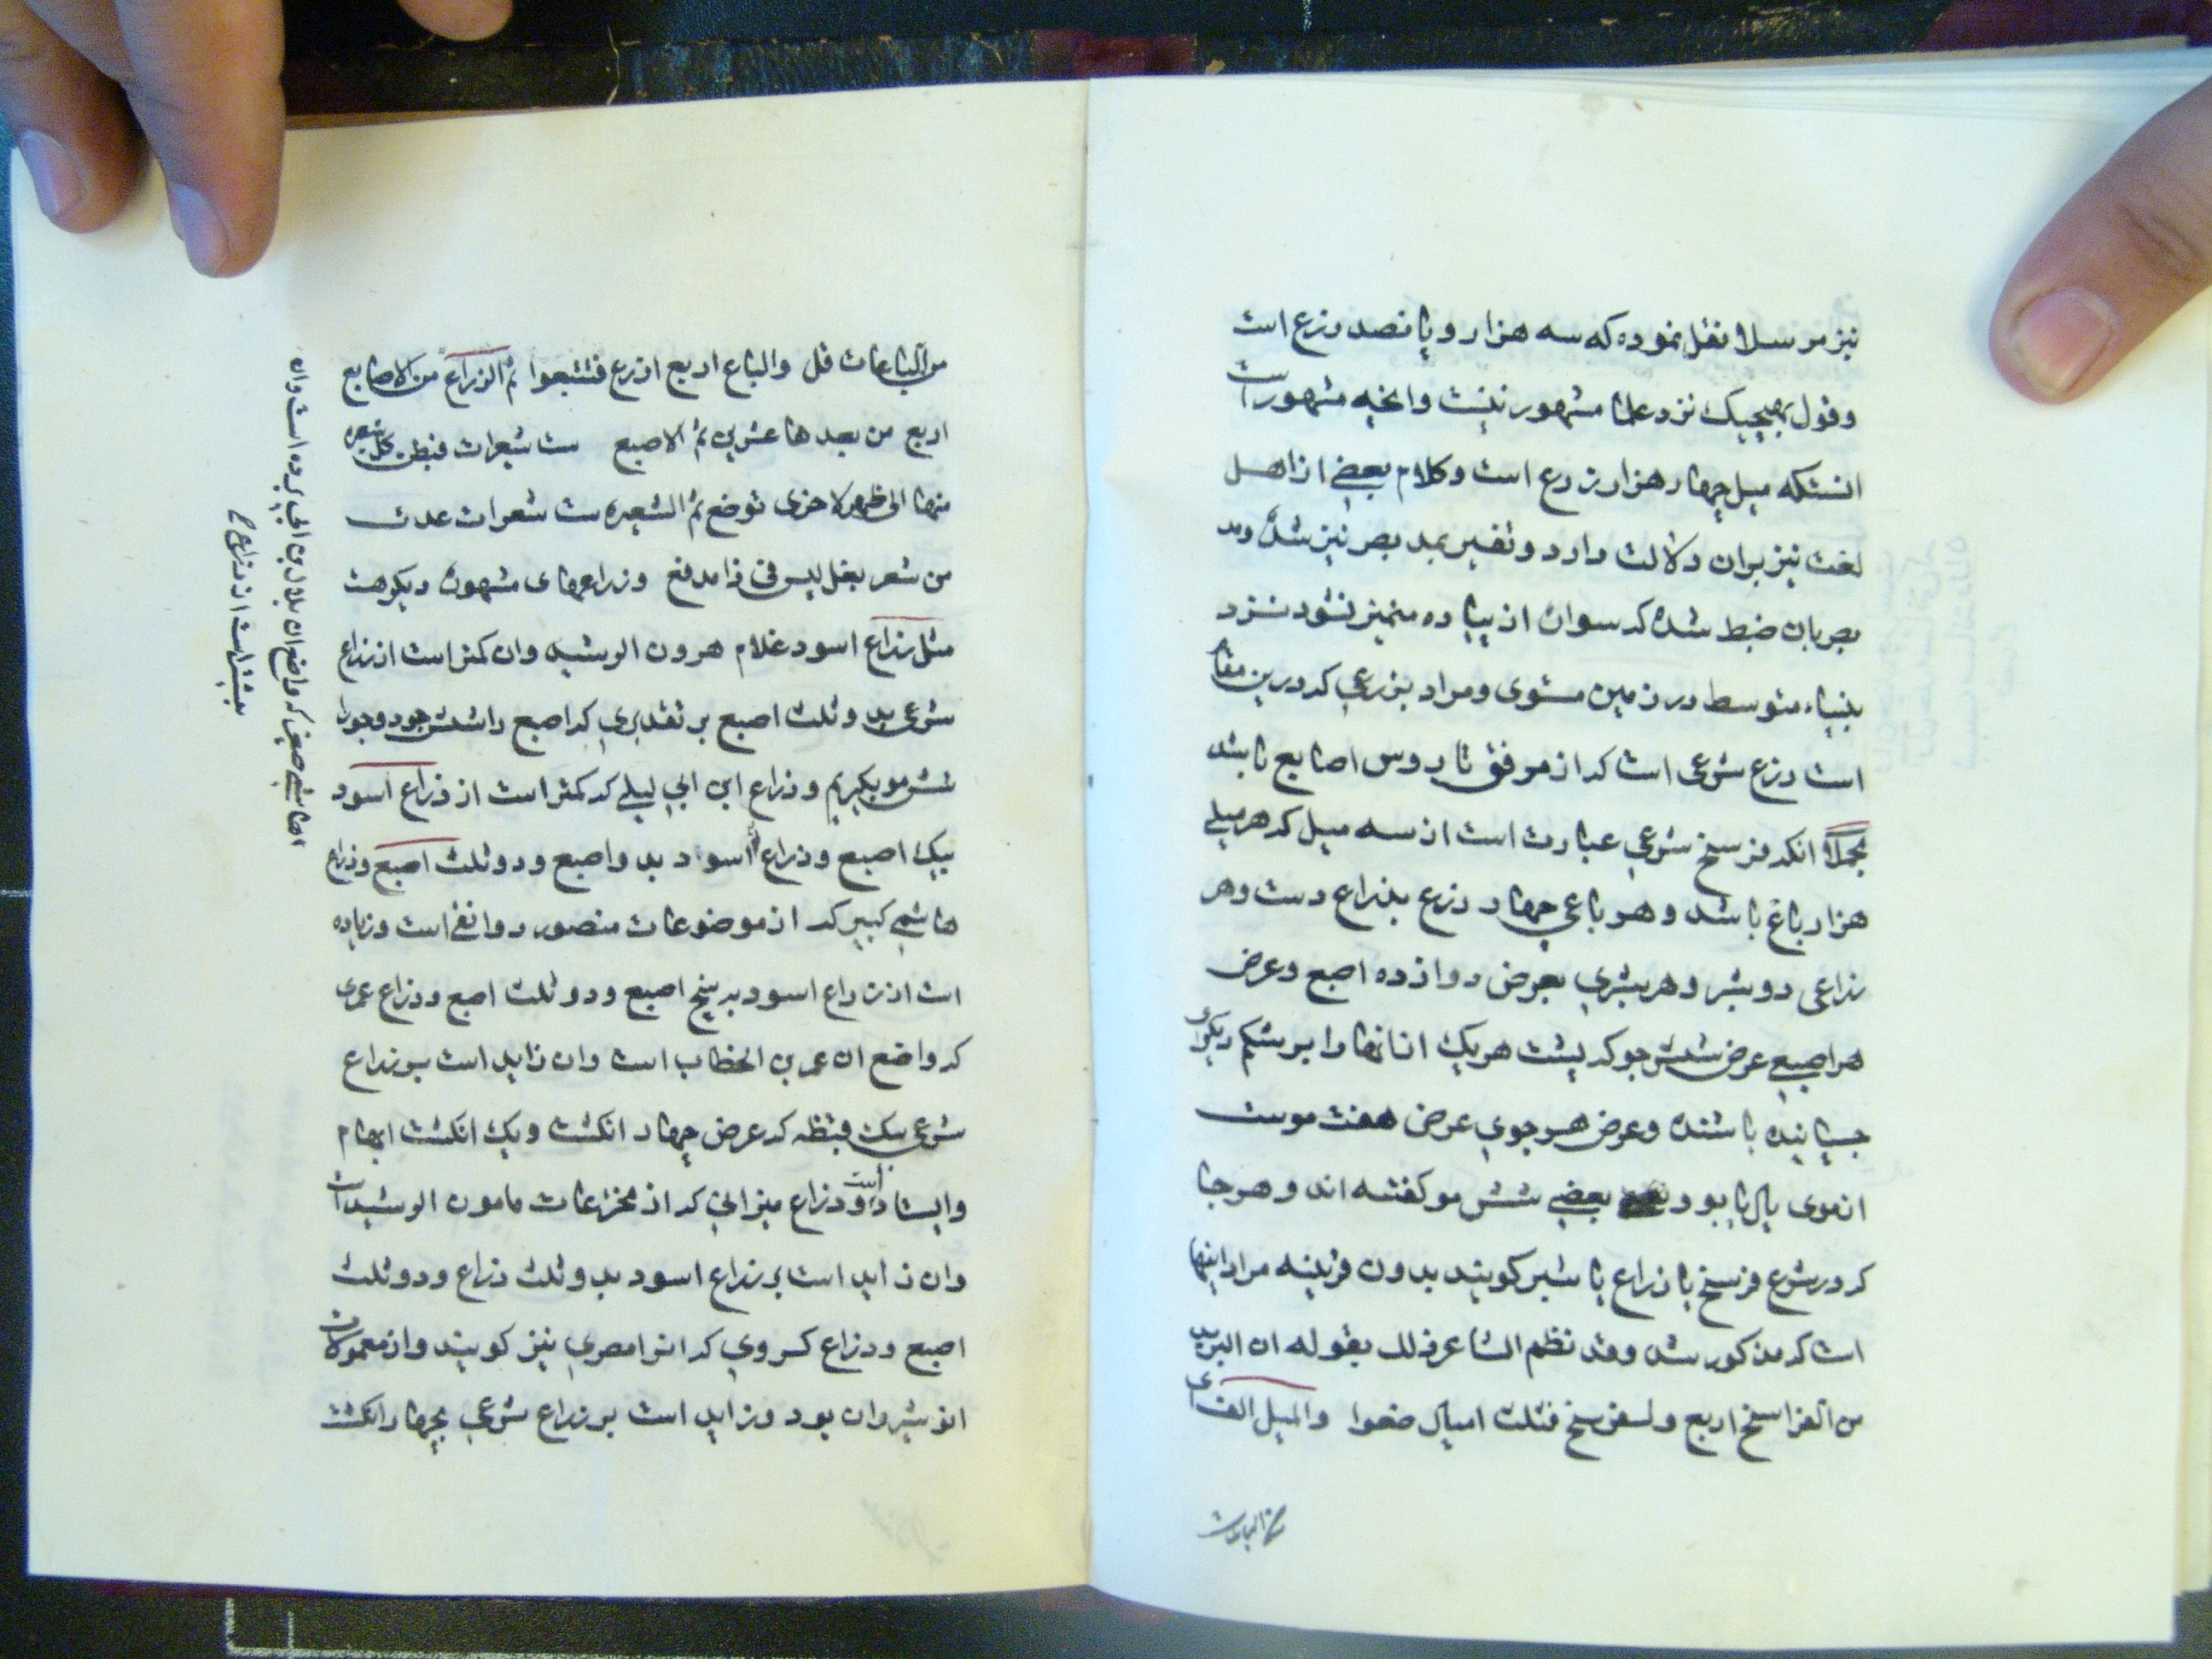 نیز مرسلا نقل نموده که سه هزار و پانصد ذرع است
و قول بهیچیک نزد علما مشهور نیست و انچه مشهور است
انستکه میل چهار هزار ذرع است و کلام بعضی از اهل
لغت نیز بران دلالت دارد و تفسیر بمد بصر نیز شده و مد
بصر بان ضبط شده که سوار از پیاده متمیز نشود نزد
بینا متوسط در زمین مستوی و مراد بذرعی که درین مقام
است ذرع شرعی است که از مرفق تا روس اصابع باشد
مجملا انکه فرسخ شرعی عبارت است از سه میل که هر میلی
هزار باع باشد و هر باعی چهار ذرع بذراع دست و هر
ذراعی دو شبر و هر شبری بعرض دوازده اصبع و عرض
هر اصبعی عرض شش جو که پشت هر یک از انها را بر شکم دیکری
چسپانیده باشند و عرض هر جوی عرض هفت موست
از موی یال یابو و بعضی شش مو کفته اند و هر جا
که در شرع فرسخ یا ذراع یا شبر کویند بدون قرینه مراد اینها
است که مذکور شد و قد نظم الشاعر ذلک بقوله ان البرید
من الفراسخ اربع و لفرسخ فثلث امیال ضعوا والمیل الف ای
من الباعات
من الباعات قل والباع اربع اذرع فتتبعوا ثم الذراع من الاصابع
اربع من بعدها عشرین ثم الاصبع ست شعیرات فبطن کل شعیره
منها الی ظهر لاخری توضع ثم الشعیره ست شعرات عدت
من شعر بغل لیس فی ذا مدفع و ذراعهای مشهوره دیکر هست
مثل ذراع اسود غلام هرون الرشید و ان کمتر است از ذراع
شرعی بد و ثلث اصبع بر تقدیری که اصبع را شش جو و جو را
شش مو بکیریم و ذراع ابن ابی لیلی که کمتر است از ذراع اسود
بیک اصبع و ذراع اسود بد و اصبع و دو ثلث اصبع و ذراع
هاشمی کبیر که از موضوعات منصور دوانقی است و زیاده
است از ذراع اسود به پنج اصبع و دو ثلث اصبع و ذراع عمری
که واضع ان عمر بن الخطاب است و ان زاید است بر ذراع
شرعی بیک قبضه که عرض چهار انکشت و یک انکشت ابهام
وایستاده است و ذراع میزانی که از مخترعات مامون الرشید است
و ان زاید است بر ذراع اسود بد و ثلث ذراع و دو ثلث
اصبع و ذراع کسروی که انرا مصری نیز کویند و از معمولات
انوشیروان بود و زاید است بر ذراع شرعی بچهار انکشت
هاشمی صغیر که واضع ان بلال بن ابی برده است و ان
بیشتر است از ذراع